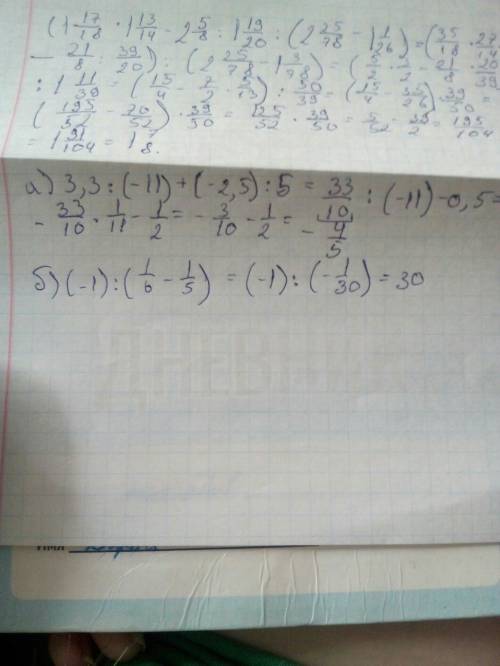 (1 17/18 · 1 13/14 - 2 5/8 : 1 19/20 : (2 25/78 - 1 1/26) = (35/18 · 27/14
- 21/8 : 39/20) : (2 25/78 - 1 3/78) = (5/2 · 3/2 - 21/8 · 20/39)
: 1 11/39 = (15/4 - 7/2 · 5/13) : 50/39 = (15/4 - 35/26) · 39/50 =
(195/52 - 70/52) · 39/50 = 125/52 · 39/50 = 5/52 · 39/2 = 195/104
= 1 91/104 = 1 7/8.
а) 3,3 : (-11) + (-2,5) : 5 = 33/10 : (-11) - 0,5 =
- 33/10 · 1/11 - 1/2 = - 3/10 - 1/2 = - 4/5
б) (-1) : (1/6 - 1/5) = (-1) : (- 1/30) = 30
ДНЕВНИК